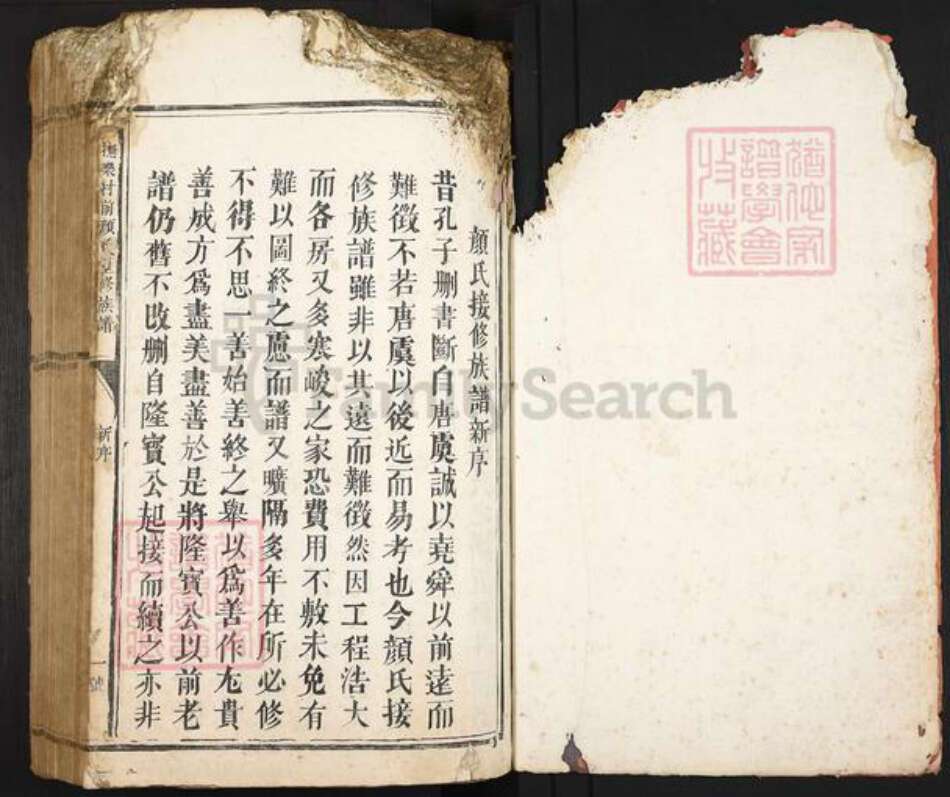 顏氏接修族譜新序
昔孔子刪書斷自唐虞誠以堯舜以前遠而
難徵不若唐虞以後近而易考也今顏氏接
修族譜雖非以其遠而難徵然因工程浩大
而各房又多寒峻之家恐費用不敷未免有
難以圖終之慮而譜又曠隔多年在所必修
不得不思一善始善終之舉以爲善作尤貴
善成方爲盡美盡善於是將隆寶公以前老
譜仍舊不改刪自隆寶公起接而續之亦非
村前顏氏 修族譜
新序
一號
猶他家
譜學會
收藏
FamilySearch